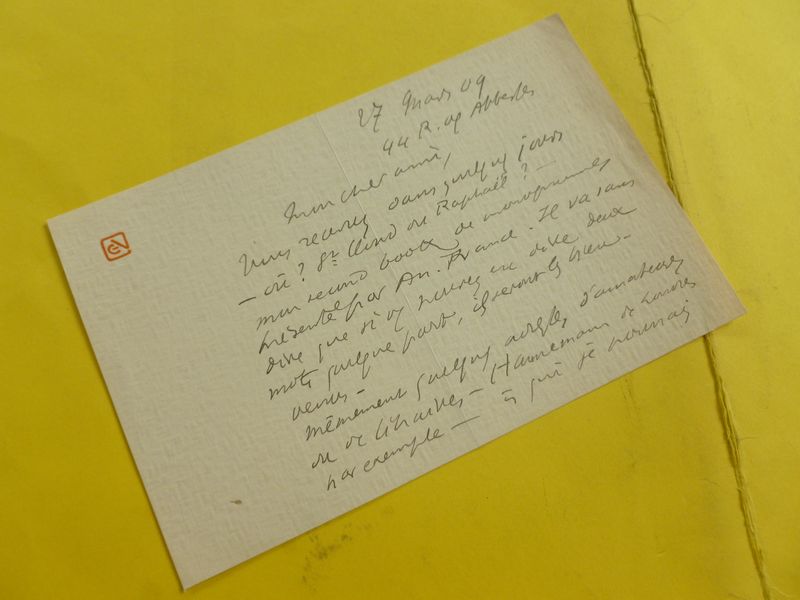 27 Mars 09
44 R. des Abbesses
Mon cher ami,
Vous recevrez dans quelques jours
— où ? St Cloud ou Raphaël ? —
mon second book de monogrammes
présenté par An. France. Il va sans
dire que si vous en dire deux
mots quelque part, ils seront les bien-
venus —
quelques adresses d'amateurs
ou de libraires — Hannemann de Londres
par exemple — à qui je pourrais